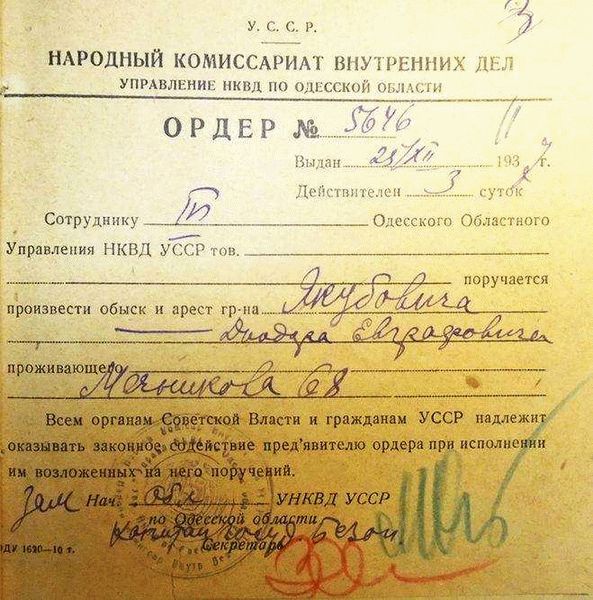 У. С. С. Р.
НАРОДНЫЙ КОМИССАРИАТ ВНУТРЕННИХ ДЕЛ
УПРАВЛЕНИЕ НКВД ПО ОДЕССКОЙ ОБЛАСТИ
ОРДЕР № 5646
Выдан 25/XII 1937 г.
Действителен 3 суток
Сотруднику Одесского Областного
Управления НКВД УССР тов.
поручается
произвести обыск и арест гр-на Якубовича
Диодора Евграфовича
проживающего
Мечникова 68
Всем органам Советской Власти и гражданам УССР надлежит
оказывать законное содействие пред'явителю ордера при исполнении
им возложенных на него поручений.
Зам Нач. Обл УНКВД УССР
по Одесской области
капитан госуд безоп
Секретарь
ОДУ 1620—10 т.